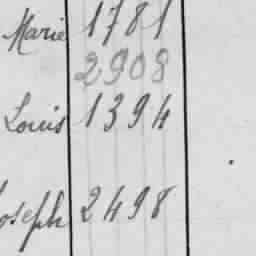 Marie 1781
2908
Louis 1394
Joseph 2498